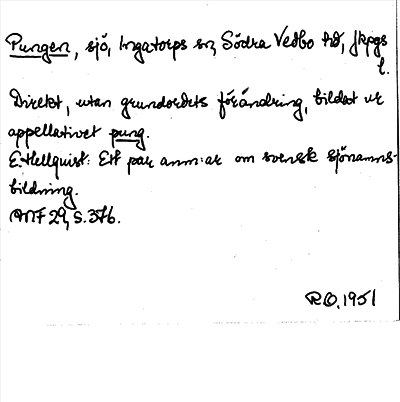 Pungen, sjö, Ingatorps sn, Södra Vedbo hd, Jkpgs
l.
Direkt, utan grundordets förändring, bildat ur
appellativet pung.
E. Hellquist: Ett par anm:ar om svensk sjönamns-
bildning.
ANF 29, s. 376.
R.O. 1951